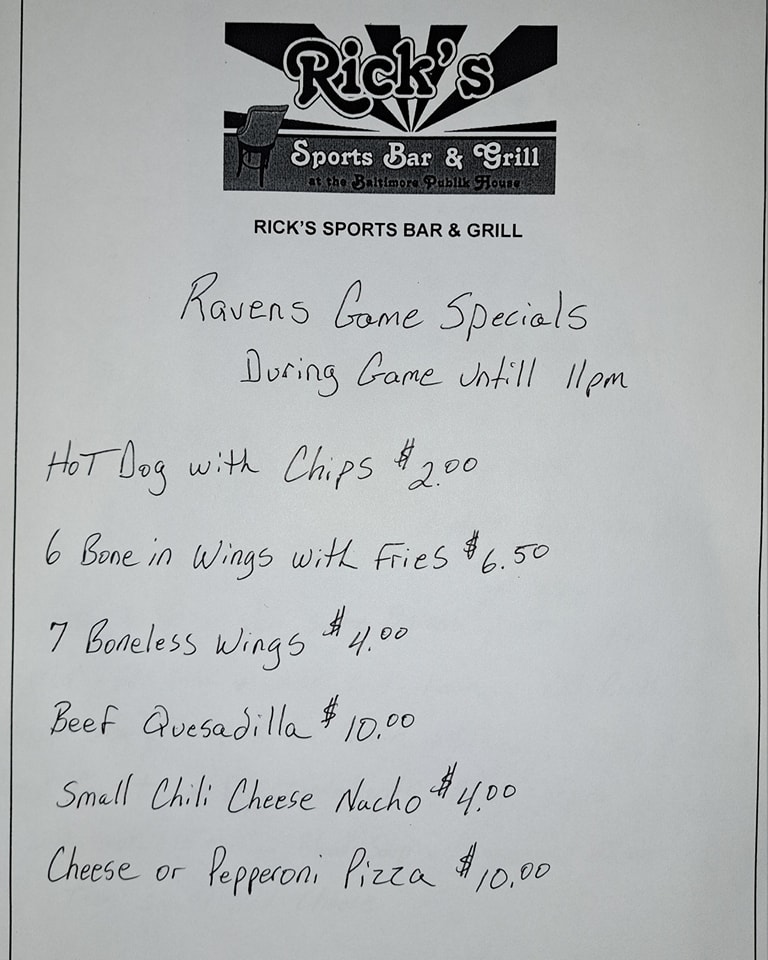 Rick's
Sports Bar & Grill
at the Baltimore Publik House
RICK'S SPORTS BAR & GRILL
Ravens Game Specials
During Game Untill 11pm
HoT Dog with Chips $2.00
6 Bone in Wings with Fries $6.50
7 Boneless Wings $4.00
Beef Quesadilla $10.00
Small Chili Cheese Nacho $4.00
Cheese or Pepperoni Pizza $10.00